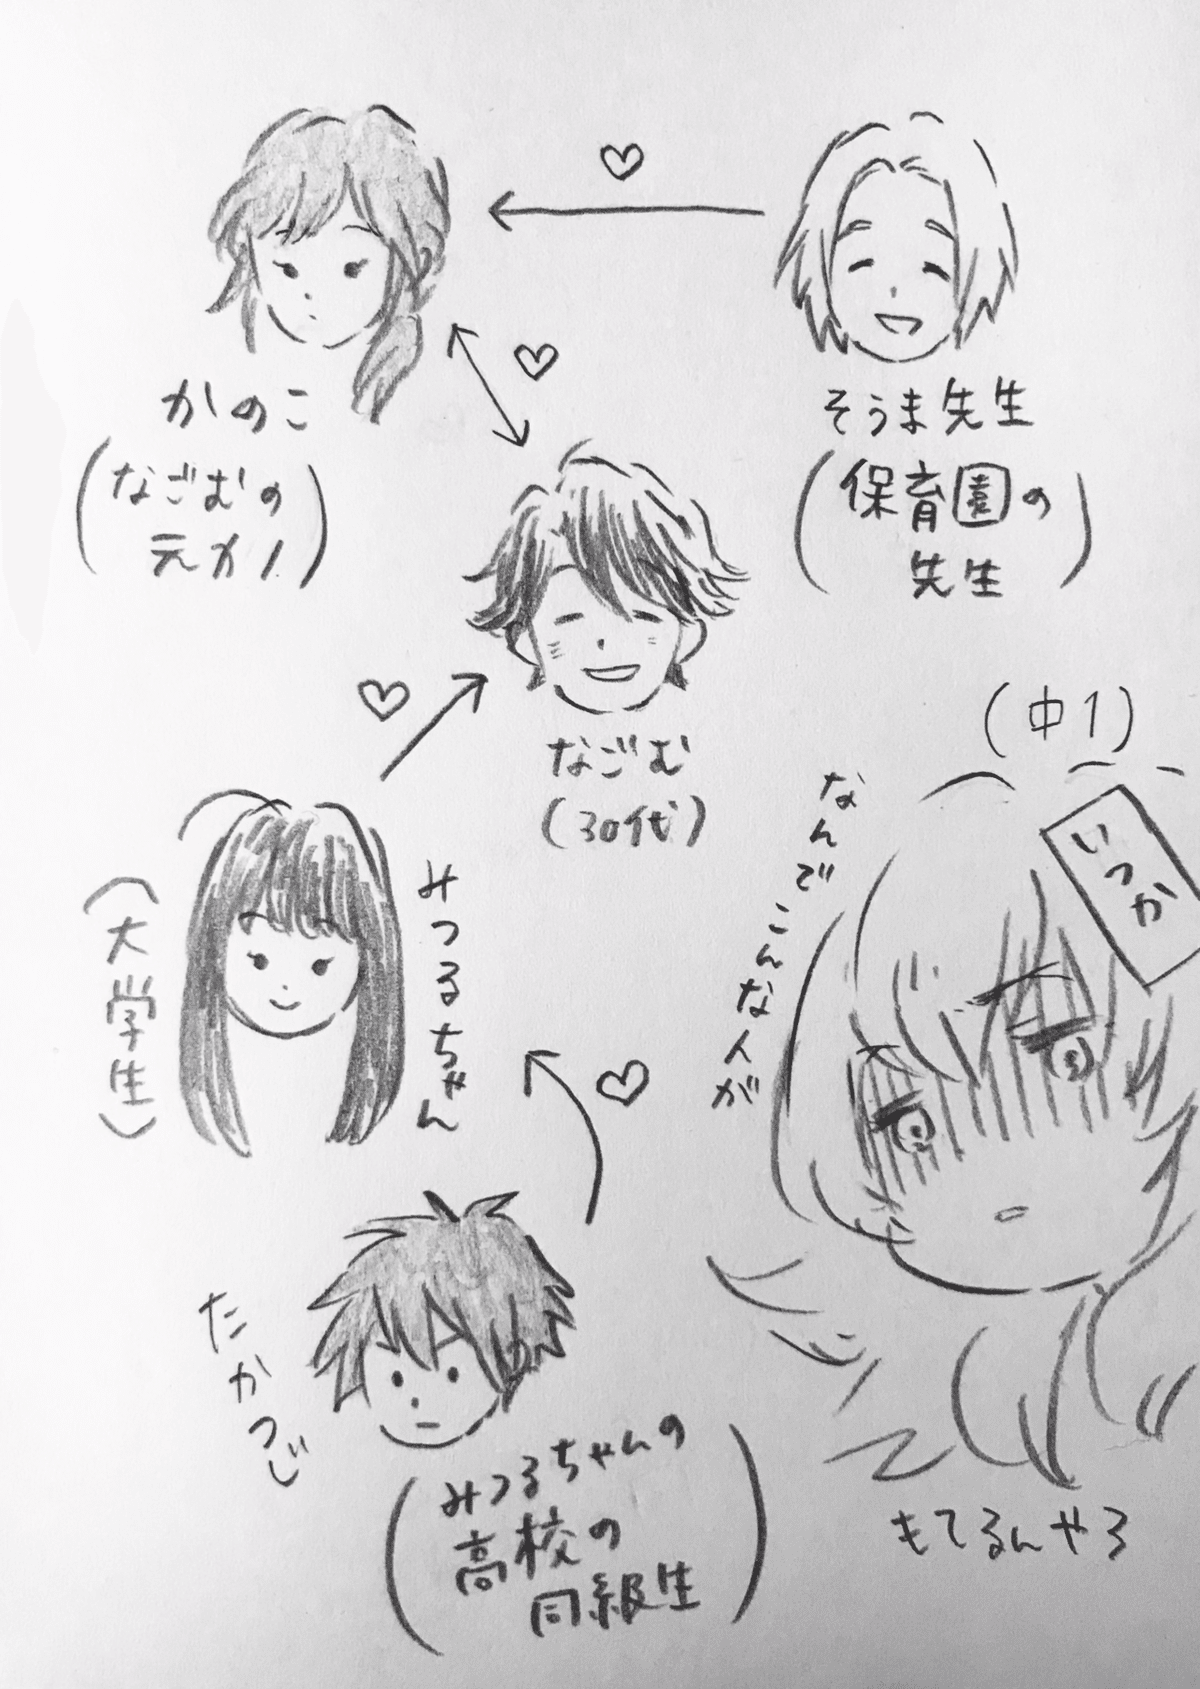 かのこ
(なごむの
元カノ)
そうま先生
(保育園の
先生)
なごむ
(30代)
みつるちゃん
(大学生)
たかつじ
(みつるちゃんの
高校の
同級生)
(中1)
いつか
なんでこんな人が
もてるんやろ